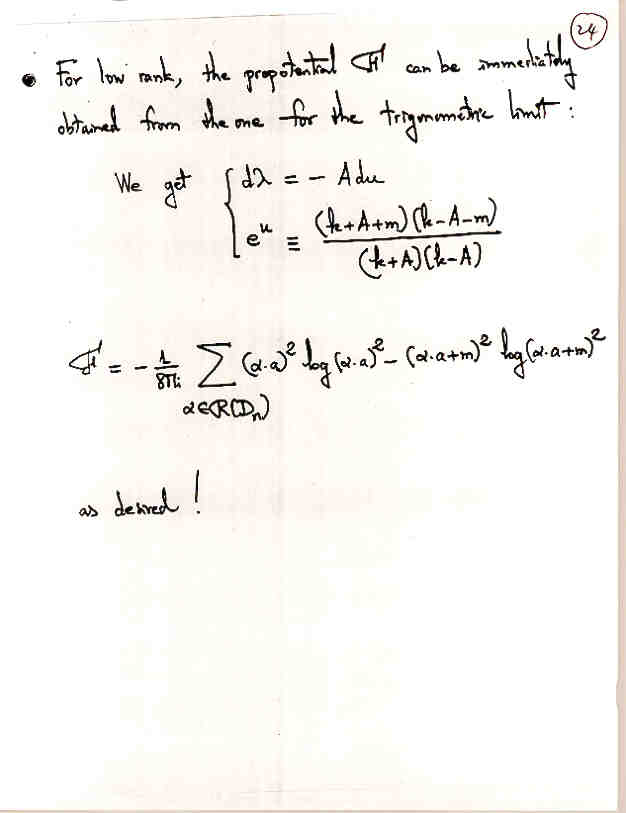 24
• For low rank, the prepotential ℱ can be immediately
obtained from the one for the trigonometric limit :
We get { dλ = - A du
e^u ≡ (k+A+m)(k-A-m) / (k+A)(k-A)
ℱ = - 1/8πi ∑_{α∈R(D_n)} (α·a)² log (α·a)² - (α·a+m)² log (α·a+m)²
as desired !